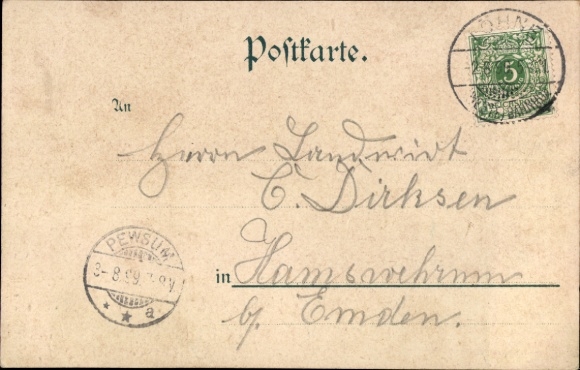 Postkarte.
5
An
Herrn Landwirt
C. Dirksen
PEWSUM
3-8.99.
* * a
in Hamswehrum
b/ Emden.